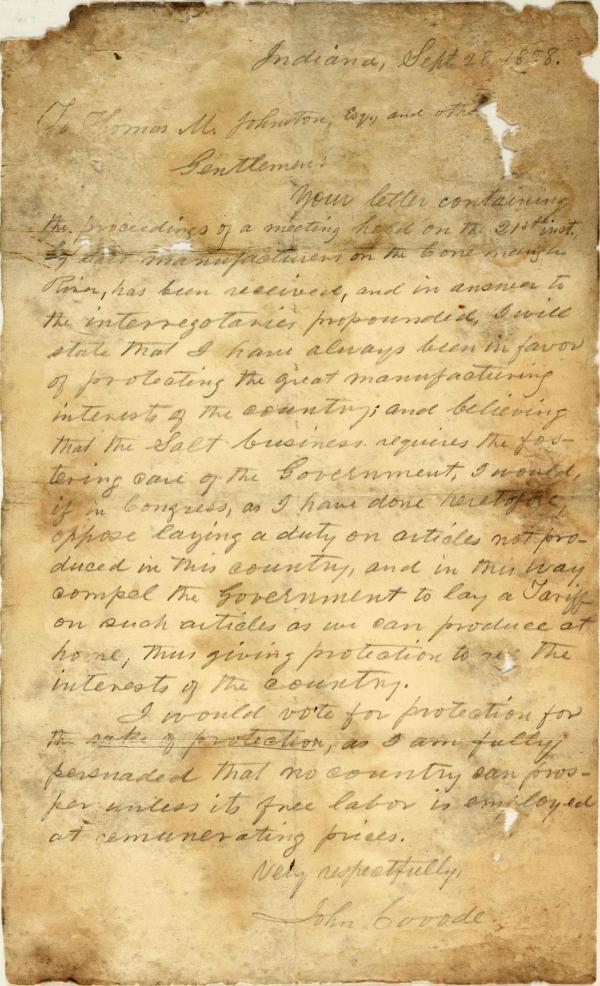 Indiana, Sept. 28, 1858.
To Thomas M. Johnston, Esq., and othe
Gentlemen:
Your letter containing
the proceedings of a meeting held on the 21st inst.,
by Salt manufacturers on the Conemaugh
River, has been received, and in answer to
the interregotaries propounded, I will
state that I have always been in favor
of protecting the great manufacturing
interests of the country; and believing
that the Salt business requires the fos-
tering care of the Government, I would,
if in Congress, as I have done heretofore,
oppose laying a duty on articles not pro-
duced in this country, and in this way
compel the Government to lay a Tariff
on such articles as we can produce at
home, thus giving protection to the
interests of the country.
I would vote for protection for
the sake of protection, as I am fully
persuaded that no country can pros-
per unless its free labor is employed
at remunerating prices.
Very respectfully,
John Covode